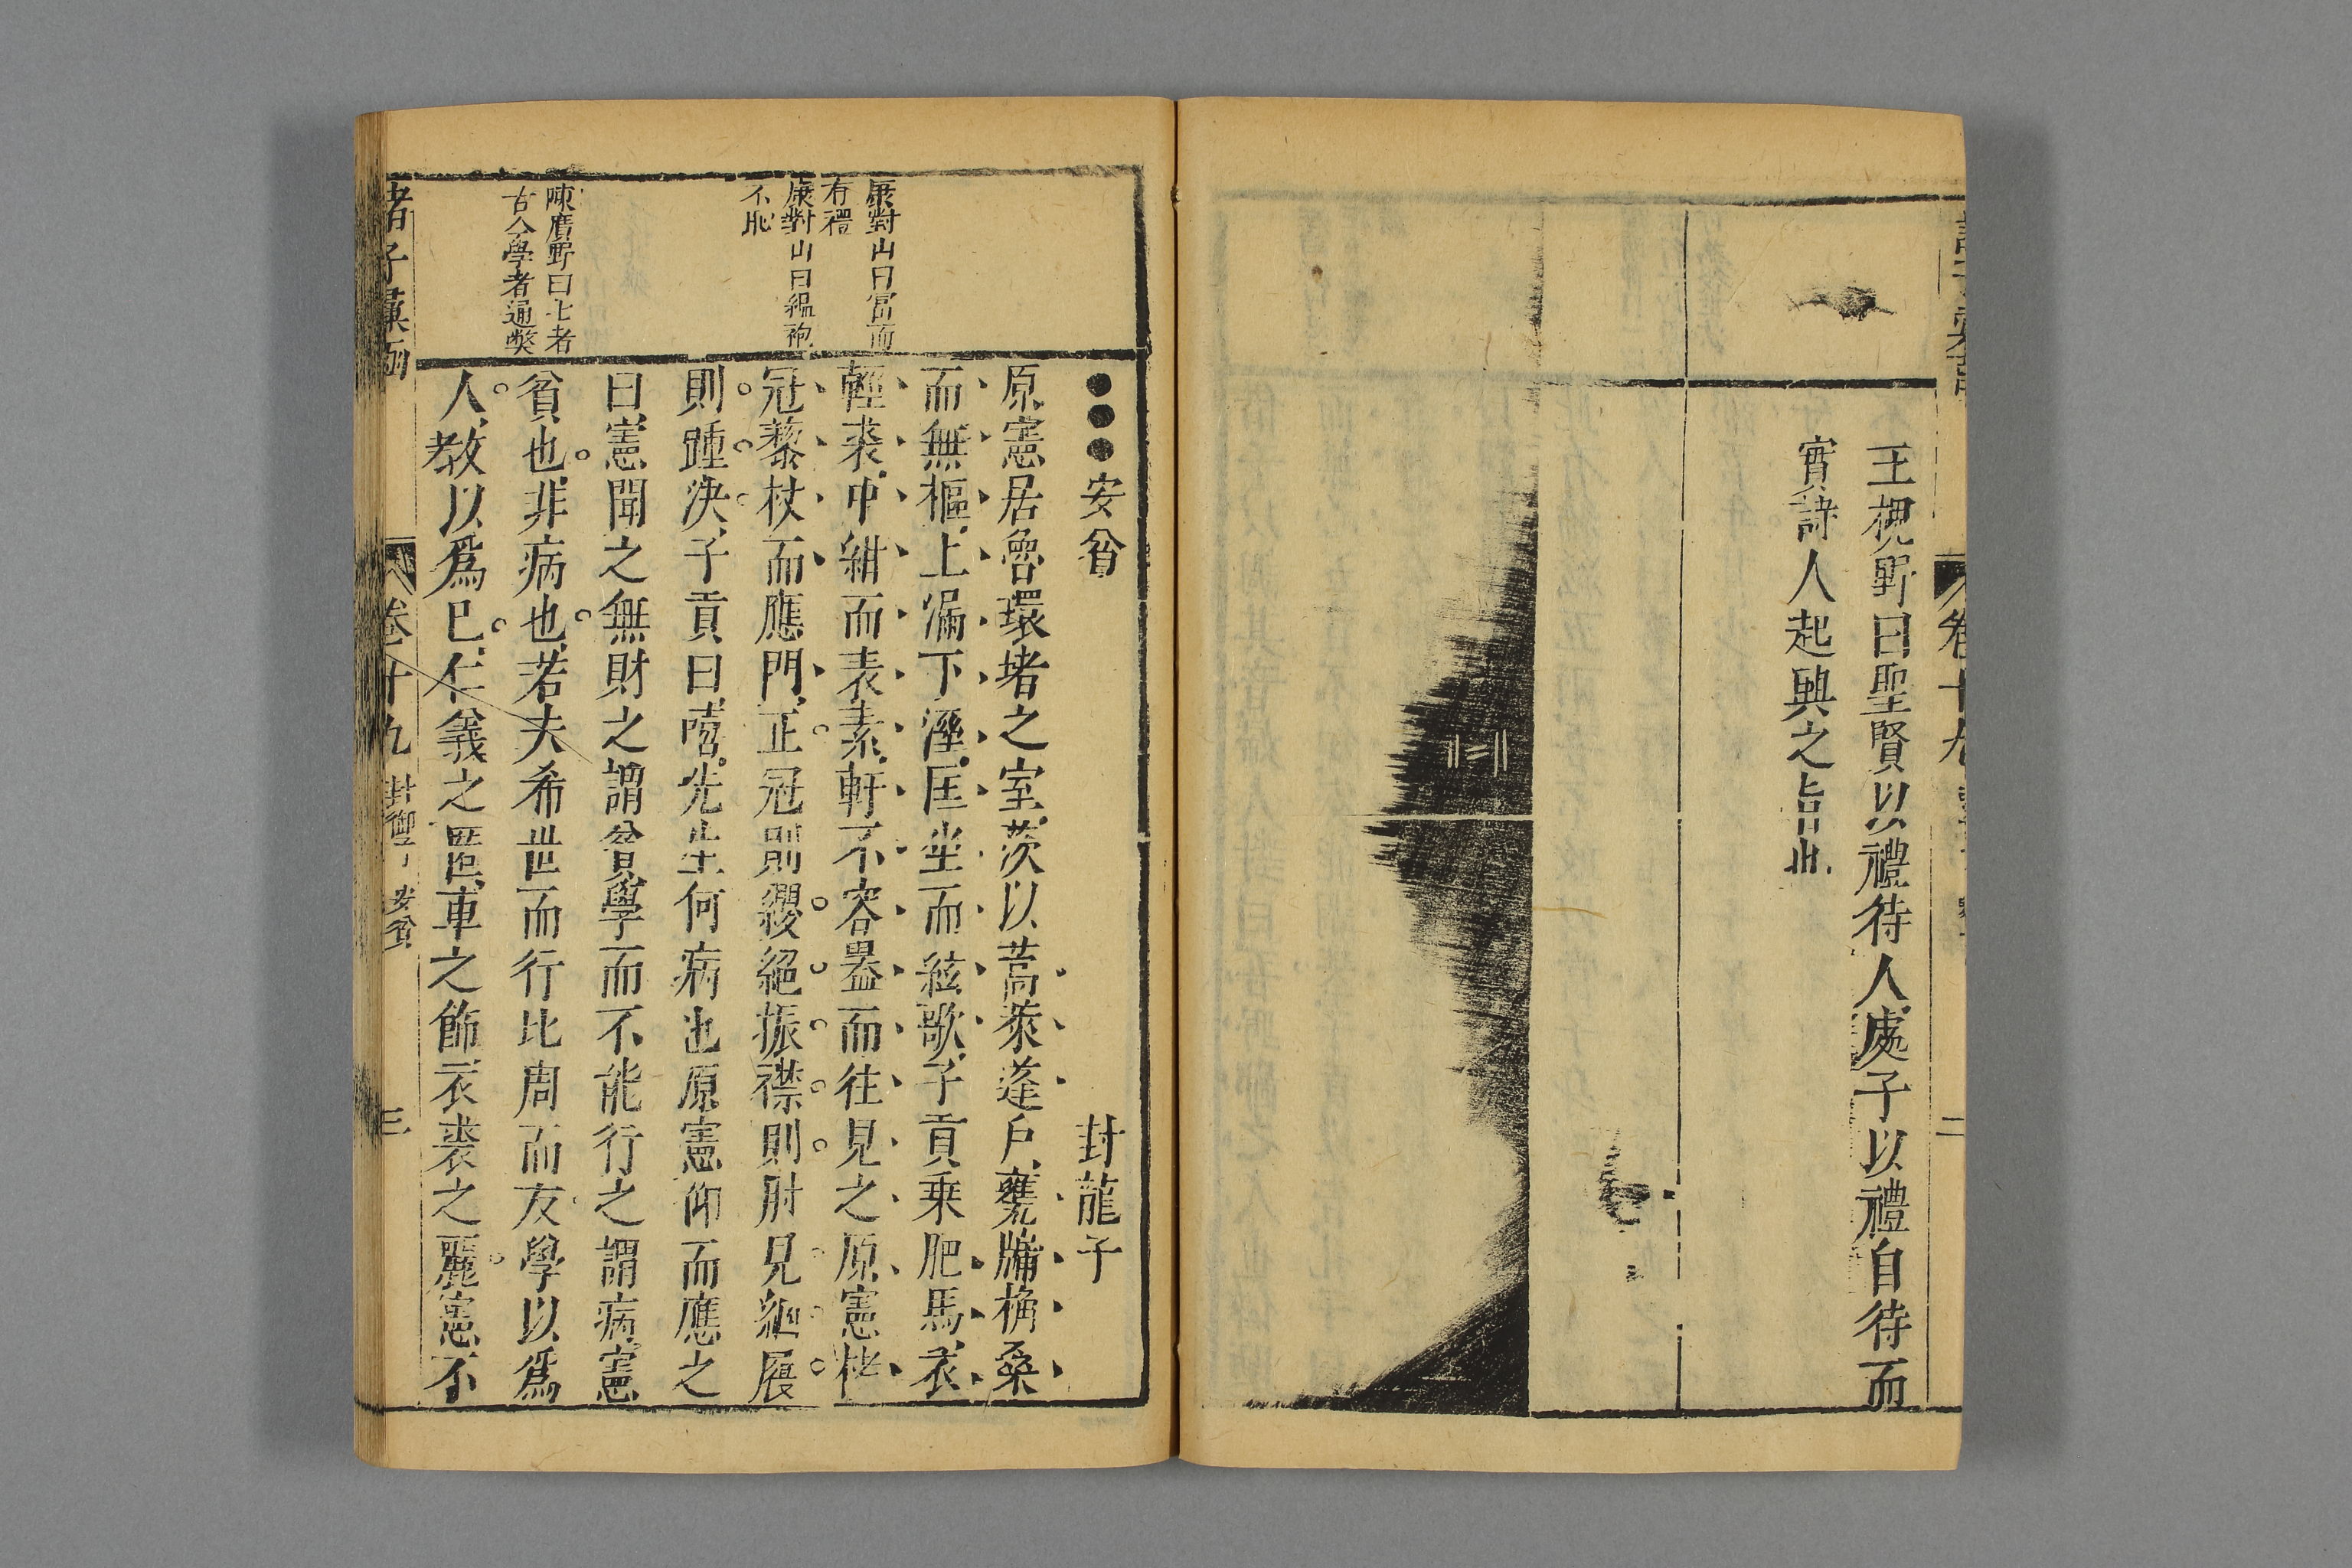 王槐野曰聖賢以禮待人處子以禮自待而
實詩人起興之旨
卷十九
二
安貧
封龍子
康對山曰富而
有禮
康對山曰縕袍
不恥
陳廣野曰七者
古今學者通獘
原憲居魯環堵之室茨以蒿萊蓬戶甕牖桷桑
而無樞上漏下溼匡坐而絃歌子貢乗肥馬衣
輕裘中紺而表素軒不容巷而往見之原憲楮
冠藜杖而應門正冠則纓絕振襟則肘見納履
則踵決子貢曰嘻先生何病也原憲仰而應之
曰憲聞之無財之謂貧學而不能行之謂病憲
貧也非病也若夫希世而行比周而友學以爲
人教以爲巳仁義之匿車之飾衣裘之麗憲不
諸子彙函
卷十九
安貧
三